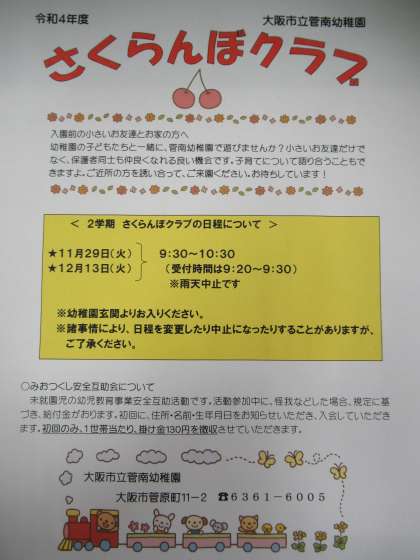 令和4年度
大阪市立菅南幼稚園
さくらんぼクラブ
入園前の小さいお友達とお家の方へ
幼稚園の子どもたちと一緒に、菅南幼稚園で遊びませんか？小さいお友達だけで
なく、保護者同士も仲良くなれる良い機会です。子育てについて語り合うこともで
きますよ。ご近所の方を誘い合って、ご来園ください。お待ちしています！
＜ 2学期 さくらんぼクラブの日程について ＞
★11月29日(火)
★12月13日(火)
9:30～10:30
（受付時間は9:20～9:30）
※雨天中止です
※幼稚園玄関よりお入りください。
※諸事情により、日程を変更したり中止になったりすることがありますが、
ご了承ください。
○みおつくし安全互助会について
未就園児の幼児教育事業安全互助活動です。活動参加中に、怪我などした場合、規定に基
づき、給付金がおります。初回に、住所・名前・生年月日をお知らせいただき、入会していただき
ます。初回のみ、1世帯当たり、掛け金130円を徴収させていただきます。
大阪市立菅南幼稚園
大阪市菅原町11－2 ☎6361－6005